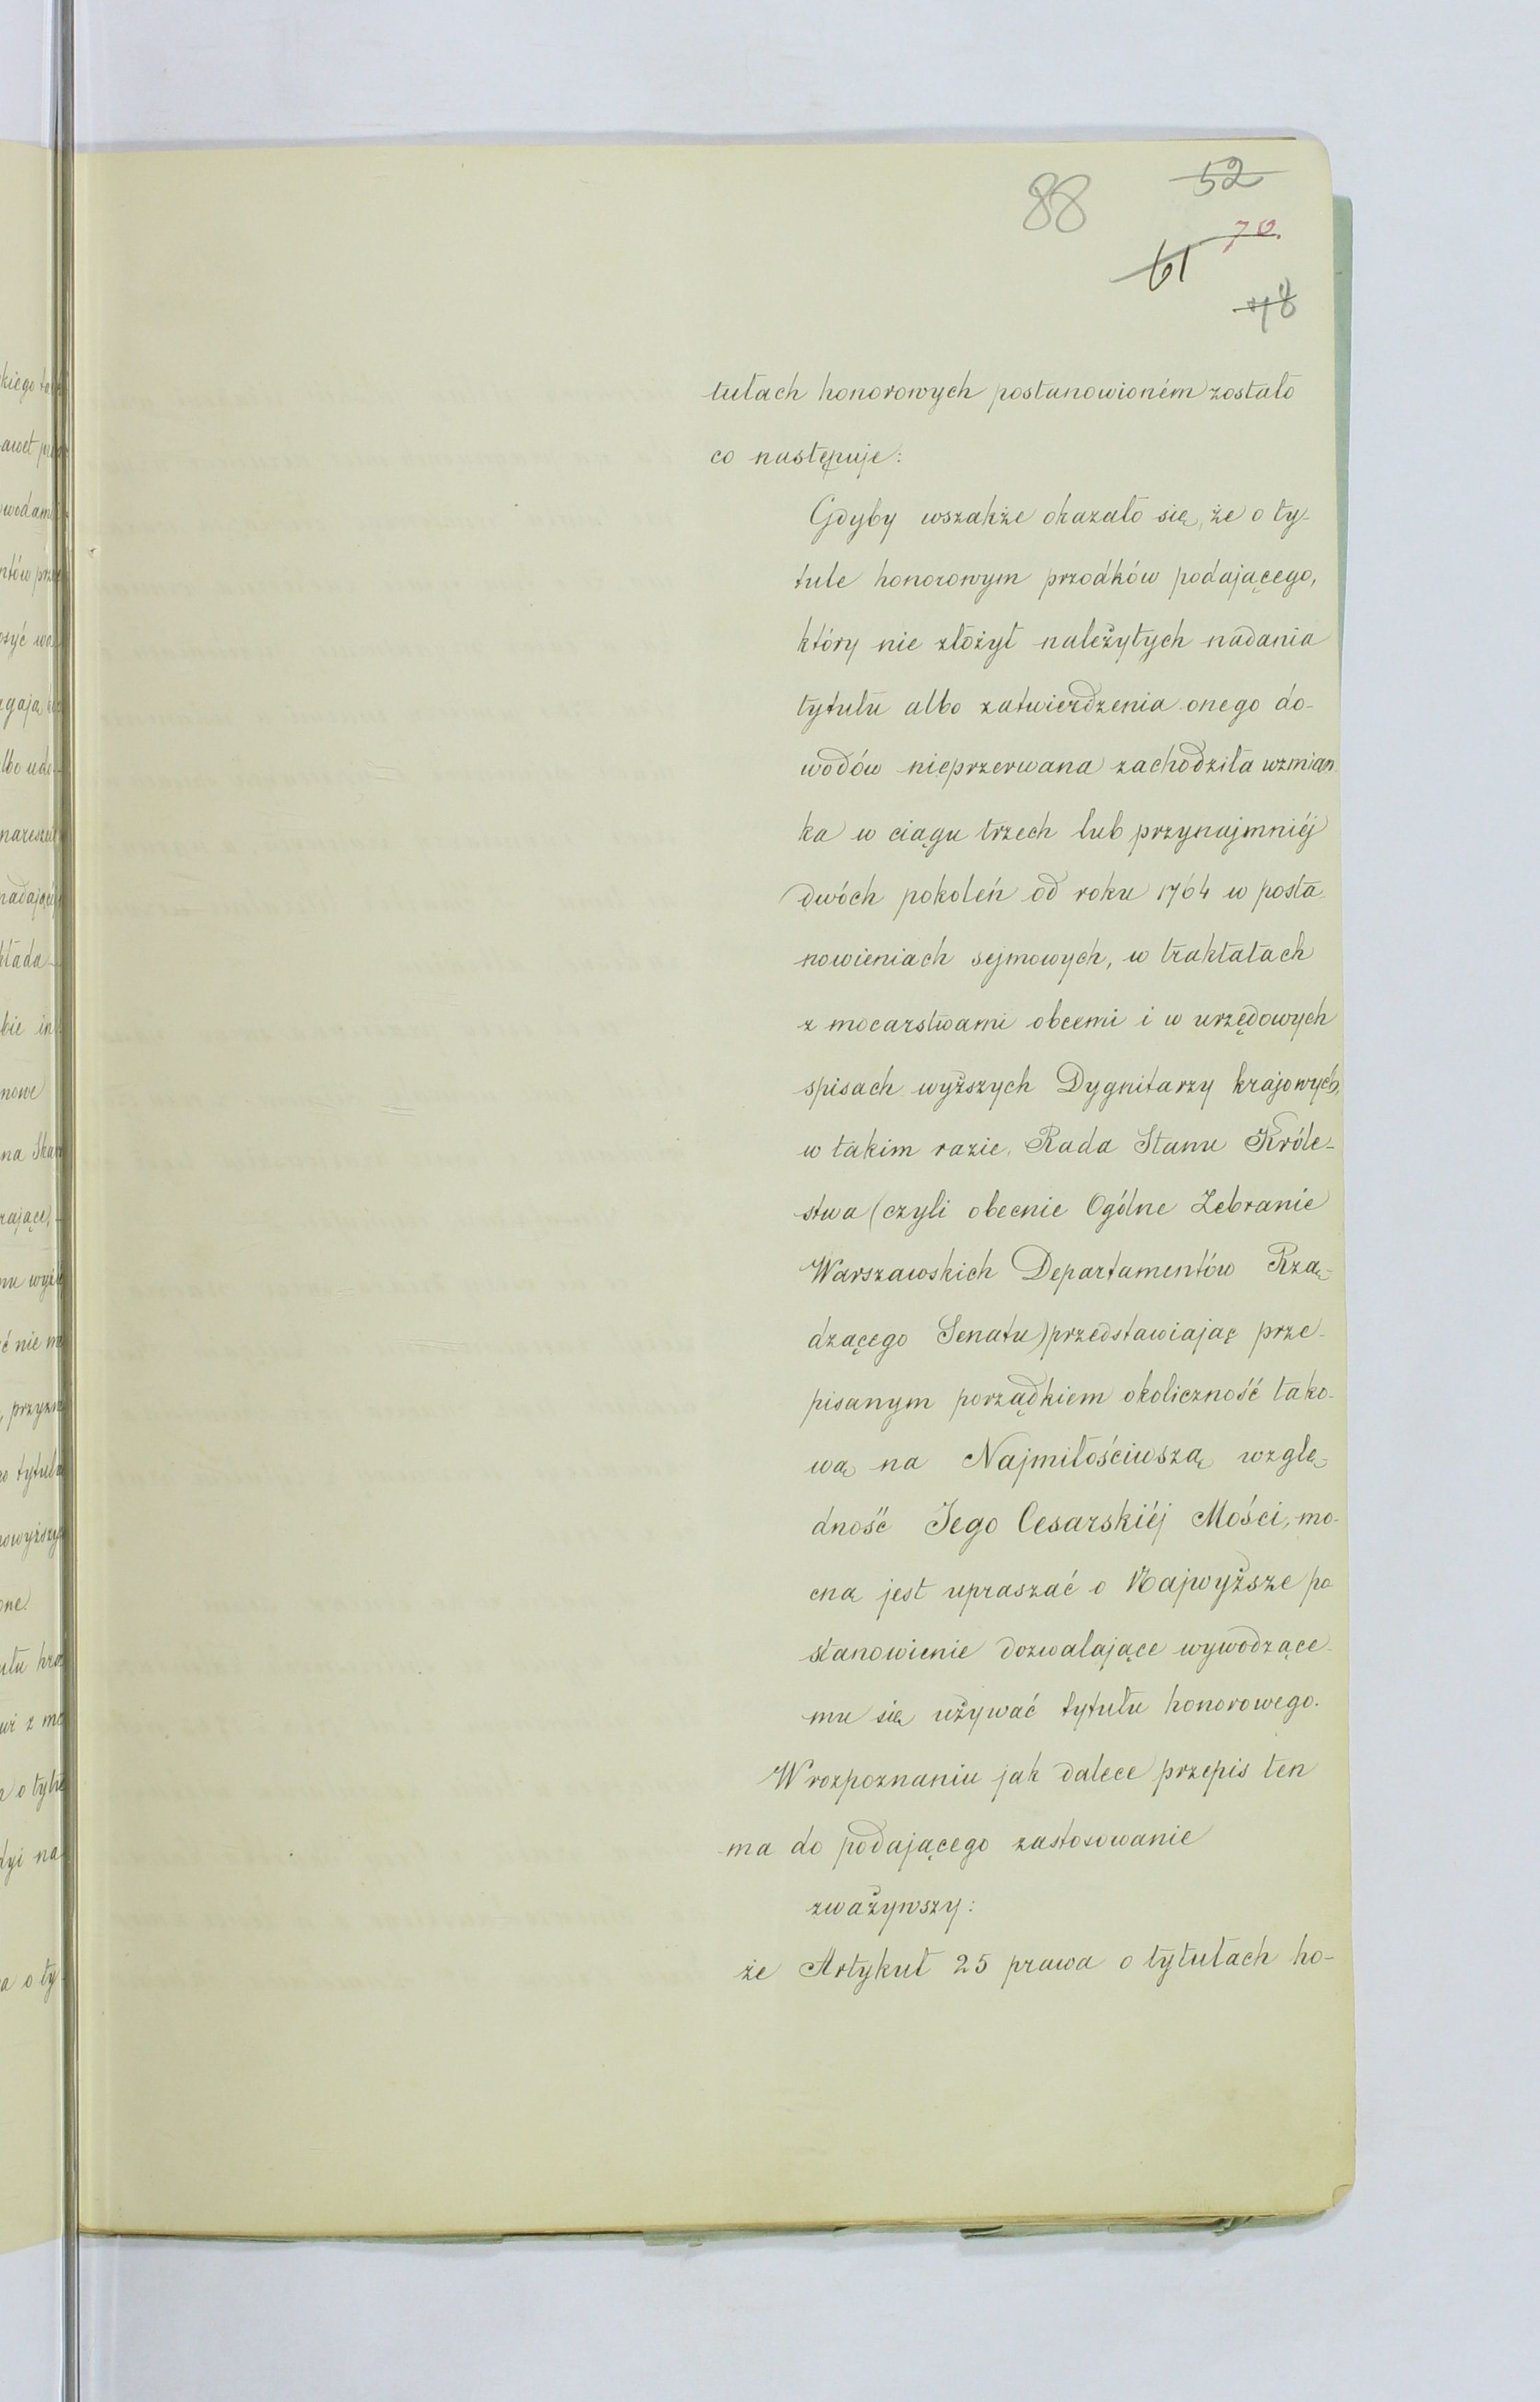 88
52
70.
61
78
tułach honorowych postanowioném zostało
co następuje:
Gdyby wszakże okazało się, że o ty-
tule honorowym przodków podającego,
który nie złożył należytych nadania
tytułu albo zatwierdzenia onego do-
wodów nieprzerwana zachodziła wzmian
ka w ciągu trzech lub przynajmniéj
dwóch pokoleń od roku 1764 w posta
nowieniach sejmowych, w traktatach
z mocarstwami obcemi i w urzędowych
spisach wyższych Dygnitarzy krajowych,
w takim razie, Rada Stanu Króle-
stwa (czyli obecnie Ogólne Zebranie
Warszawskich Departamentów Rzą-
dzącego Senatu) przedstawiając prze-
pisanym porządkiem okoliczność tako-
wą na Najmiłościwszą wzglę-
dność Jego Cesarskiéj Mości, mo-
cną jest upraszać o Najwyższe po
stanowienie dozwalające wywodzące-
mu się używać tytułu honorowego.
W rozpoznaniu jak dalece przepis ten
ma do podającego zastosowanie
zważywszy:
że Artykuł 25 prawa o tytułach ho-